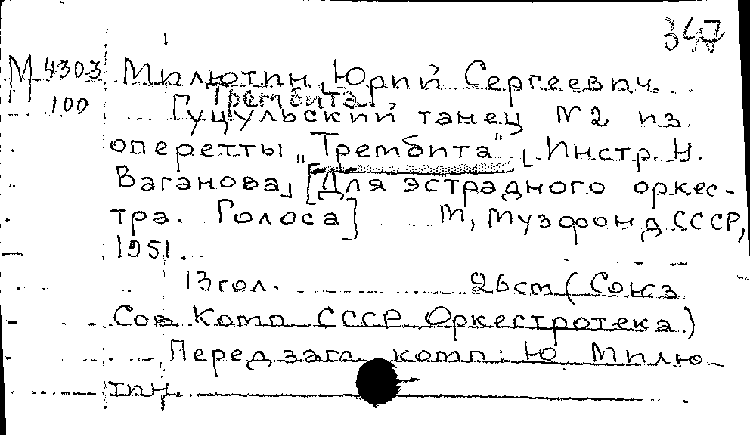 347
М 4303 Милютин, Юрий Сергеевич.
100 Трембита
Гуцульский танец №2 из
оперетты „Трембита". Инстр. Н.
Ваганова, [Для эстрадного оркес-
тра. Голоса] М, Музфонд СССР,
1951.
13 гол. 26 cm (Союз
Сов Комп СССР Оркестротека)
Перед загл. комп: Ю. Милю-
тин.